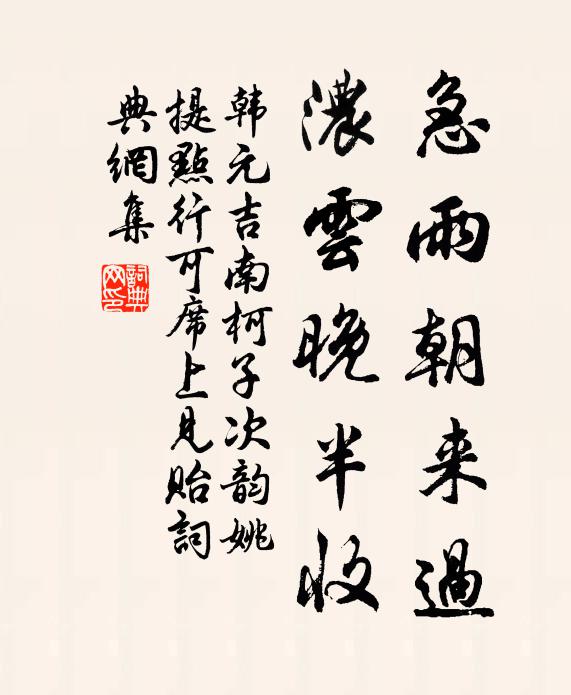 急雨朝来過
濃雲晚半收
韩元吉南柯子次韵姚
提點行可席上見貽詞
典網集
詞典网印